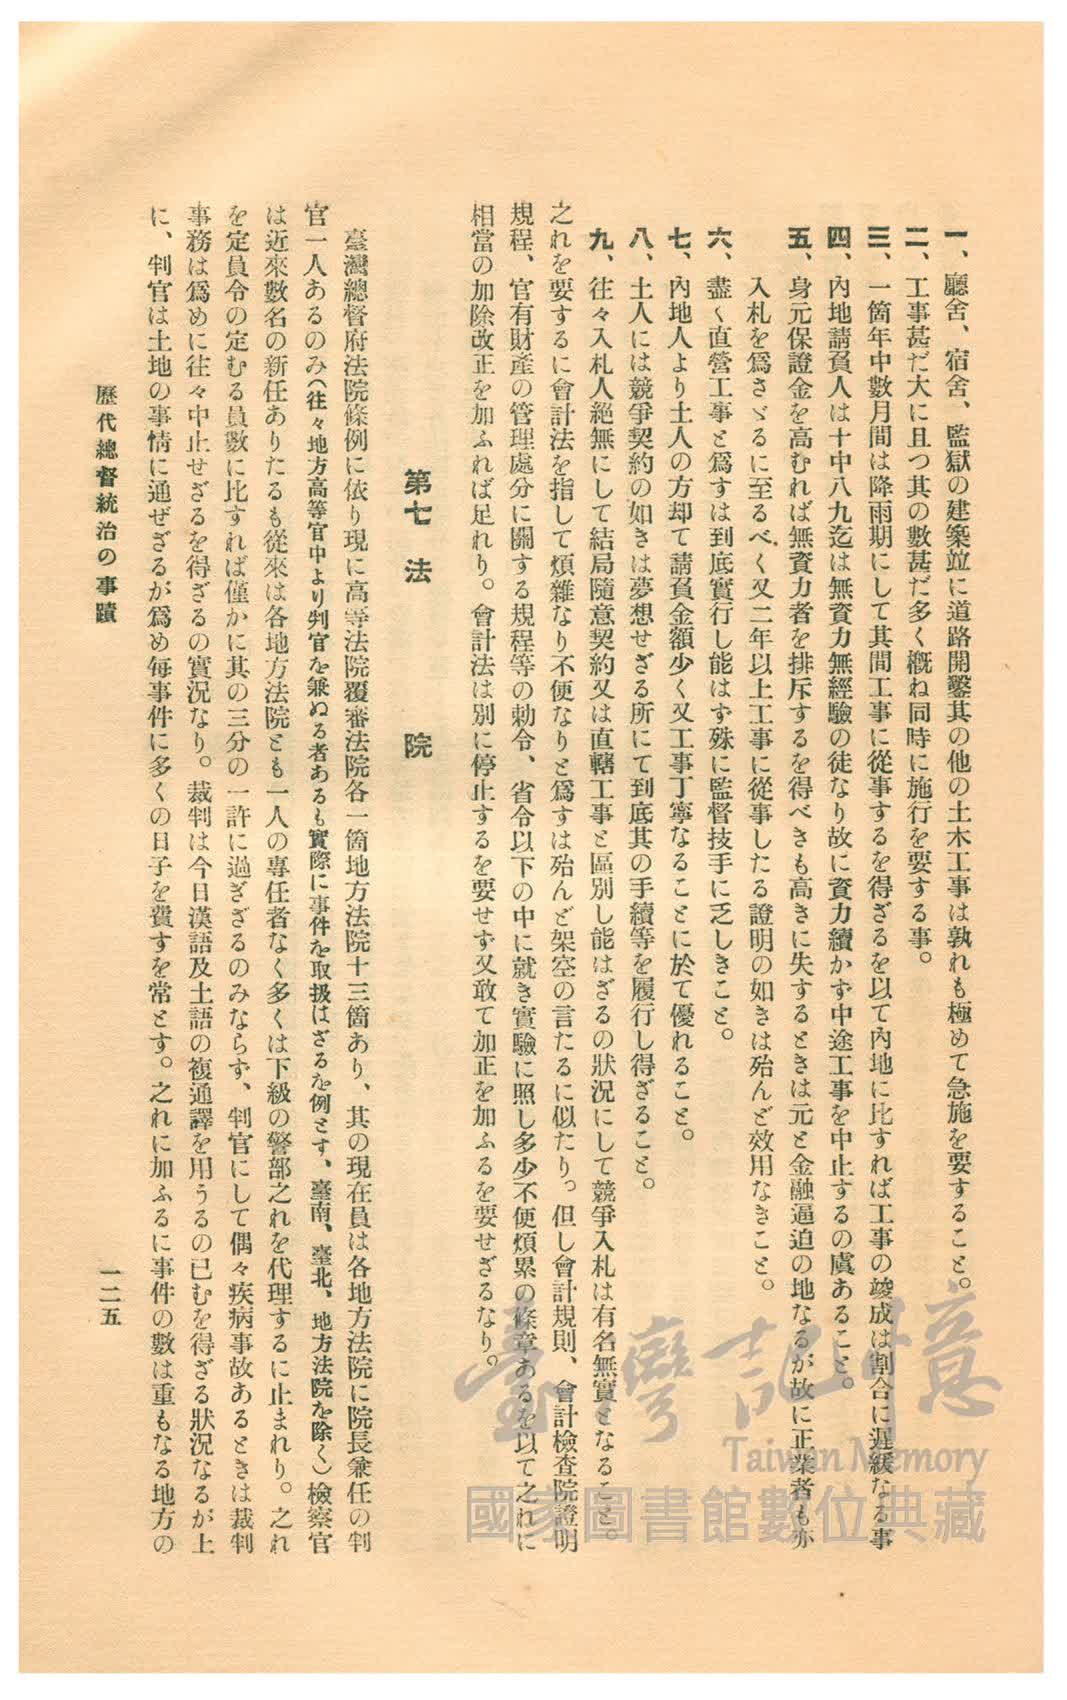 一、廳舍、宿舍、監獄の建築竝に道路開鑿其の他の土木工事は孰れも極めて急施を要すること。
二、工事甚だ大に且つ其の數甚だ多く概ね同時に施行を要する事。
三、一箇年中數月間は降雨期にして其間工事に從事するを得ざるを以て內地に比すれば工事の竣成は割合に遲緩なる事
四、內地請負人は十中八九迄は無資力無經驗の徒なり故に資力續かず中途工事を中止するの虞あること。
五、身元保證金を高むれば無資力者を排斥するを得べきも高きに失するときは元と金融逼迫の地なるが故に正業者も亦
入札を爲さゞるに至るべく又二年以上工事に從事したる證明の如きは殆んど效用なきこと。
六、盡く直營工事と爲すは到底實行し能はず殊に監督技手に乏しきこと。
七、內地人より土人の方却て請負金額少く又工事丁寧なることに於て優れること。
八、土人には競爭契約の如きは夢想せざる所にて到底其の手續等を履行し得ざること。
九、往々入札人絕無にして結局隨意契約又は直轄工事と區別し能はざるの狀況にして競爭入札は有名無實となること。
之れを要するに會計法を指して煩雜なり不便なりと爲すは殆んど架空の言たるに似たり。但し會計規則、會計檢査院證明
規程、官有財產の管理處分に關する規程等の勅令、省令以下の中に就き實驗に照し多少不便煩累の條章あるを以て之れに
相當の加除改正を加ふれば足れり。會計法は別に停止するを要せず又敢て加正を加ふるを要せざるなり。
第七 法 院
臺灣總督府法院條例に依り現に高等法院覆審法院各一箇地方法院十三箇あり、其の現在員は各地方法院に院長兼任の判
官一人あるのみ(往々地方高等官中より判官を兼ぬる者あるも實際に事件を取扱はざるを例とす、臺南、臺北、地方法院を除く)檢察官
は近來數名の新任ありたるも從來は各地方法院とも一人の專任者なく多くは下級の警部之れを代理するに止まれり。之れ
を定員令の定むる員數に比すれば僅かに其の三分の一許に過ぎざるのみならす、判官にして偶々疾病事故あるときは裁判
事務は爲めに往々中止せざるを得ざるの實況なり。裁判は今日漢語及土語の複通譯を用うるの已むを得ざる狀況なるが上
に、判官は土地の事情に通ぜざるが爲め每事件に多くの日子を費すを常とす。之れに加ふるに事件の數は重もなる地方の
歷代總督統治の事蹟
一二五
臺灣記憶
Taiwan Memory
國家圖書館數位典藏